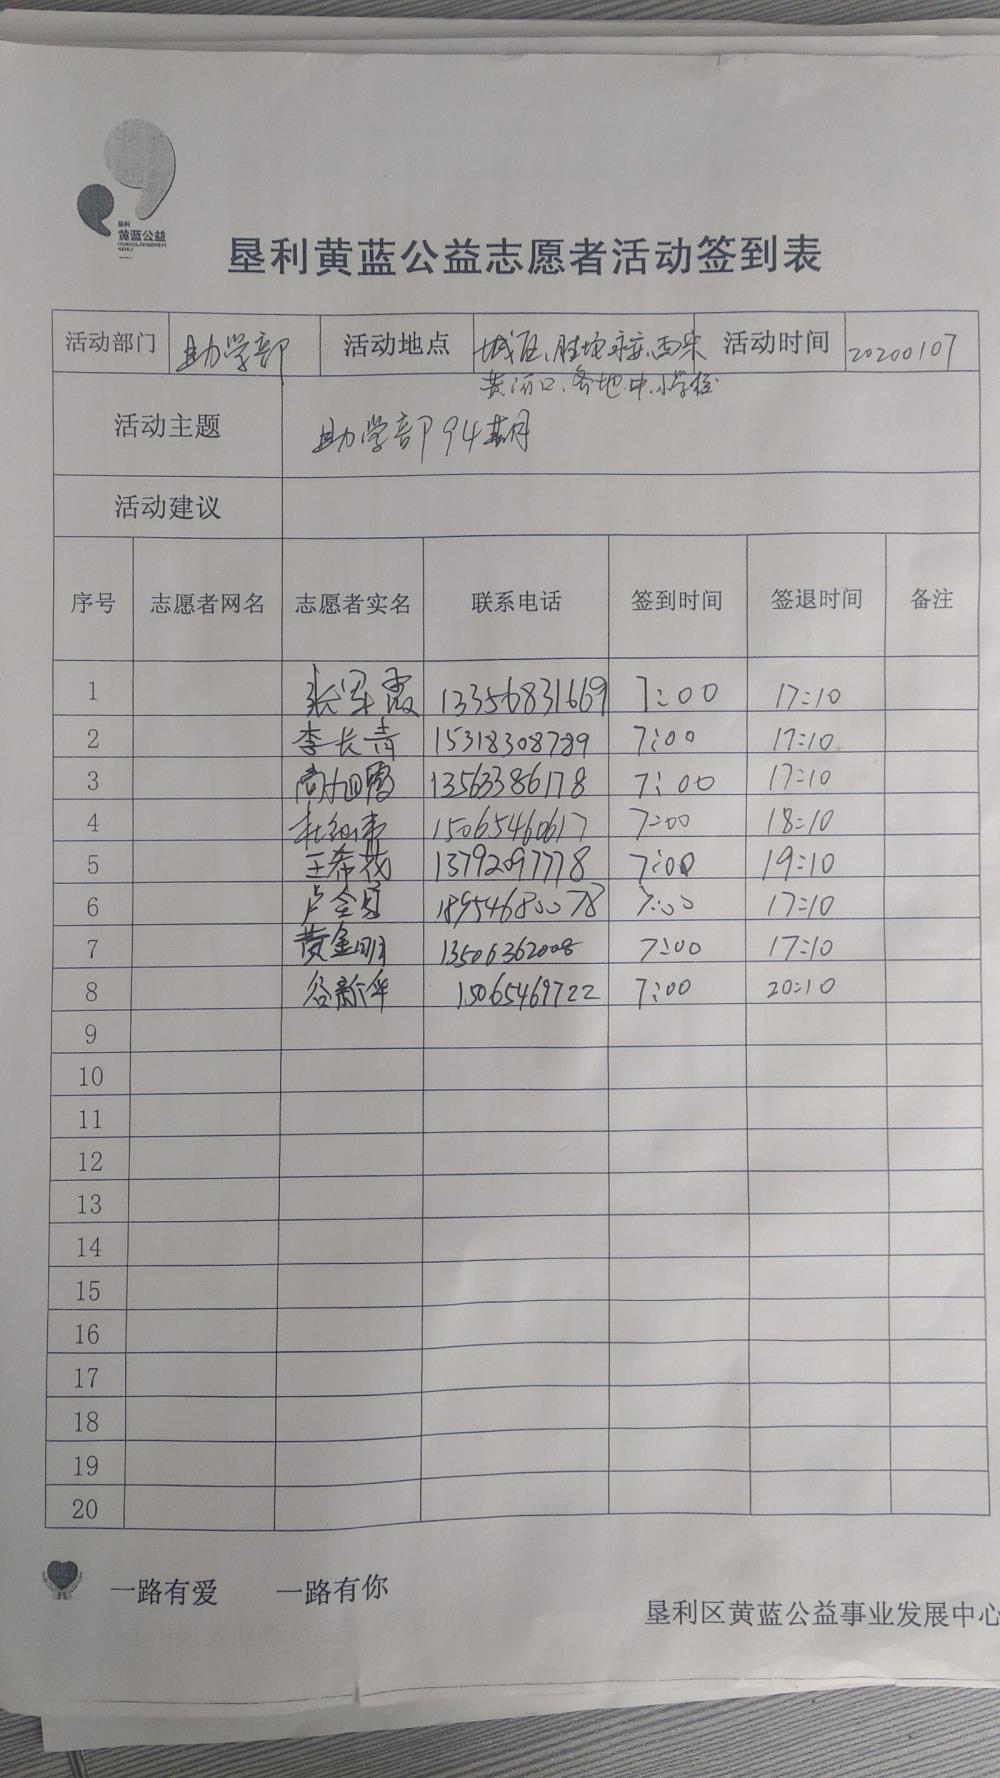 垦利
黄蓝公益
垦利黄蓝公益志愿者活动签到表
活动部门 助学部 活动地点 城区、胜坨、永安、西宋 活动时间 20200107
黄河口、各地中小学校
活动主题 助学部94期
活动建议
序号 志愿者网名 志愿者实名 联系电话 签到时间 签退时间 备注
1 张翠霞 13356831669 7:00 17:10
2 李长青 15318308789 7:00 17:10
3 尚旭霞 13563386178 7:00 17:10
4 15065460617 7:00 18:10
5 王希茂 13792097778 7:00 19:10
6 18954680078 7:00 17:10
7 黄金明 13506362008 7:00 17:10
8 谷新华 15065469722 7:00 20:10
9
10
11
12
13
14
15
16
17
18
19
20
一路有爱 一路有你
垦利区黄蓝公益事业发展中心